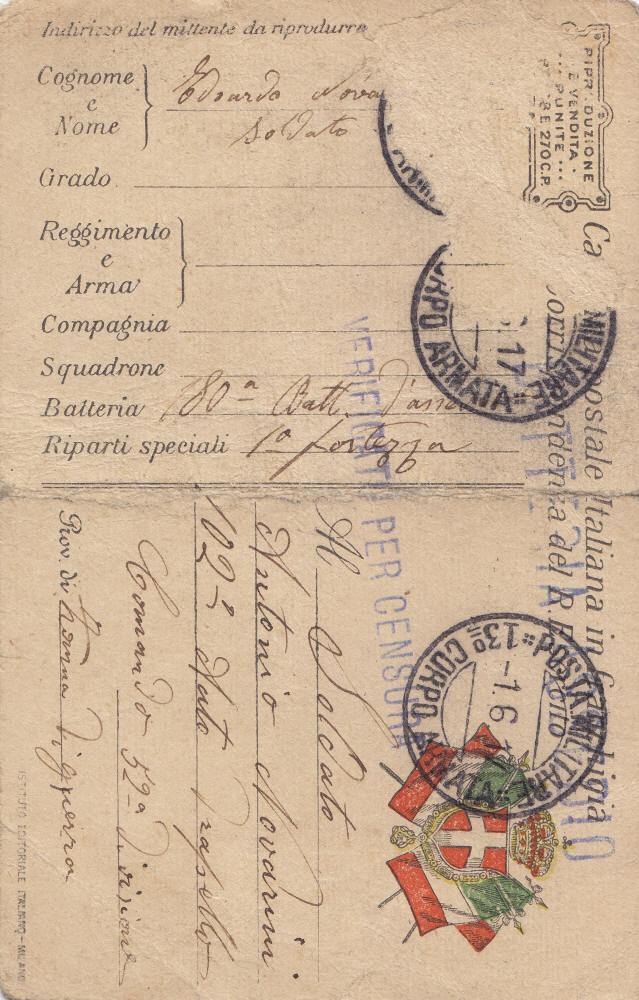 Indirizzo del mittente da riprodurre
Cognome
e
Nome
Edoardo Nova
Soldato
Grado
Reggimento
e
Arma
Compagnia
Squadrone
Batteria 180ª Batt. d'asse
Riparti speciali 1ª fortezza
RIPR DUZIONE
E VENDITA
PUNITE
BE 270 C.P.
Ca postale Italiana in f nchigia
ondenza del R. E
MILITARE
CORPO ARMATA
17
VERIFICATA PER CENSURA
POSTA MILITARE
13º CORPO ARMATA
-1.6.1
Al Soldato
Antonio Novarini
102ª
Comando 52ª Divisione
Prov. di Zona di guerra
ISTITUTO EDITORIALE ITALIANO - MILANO